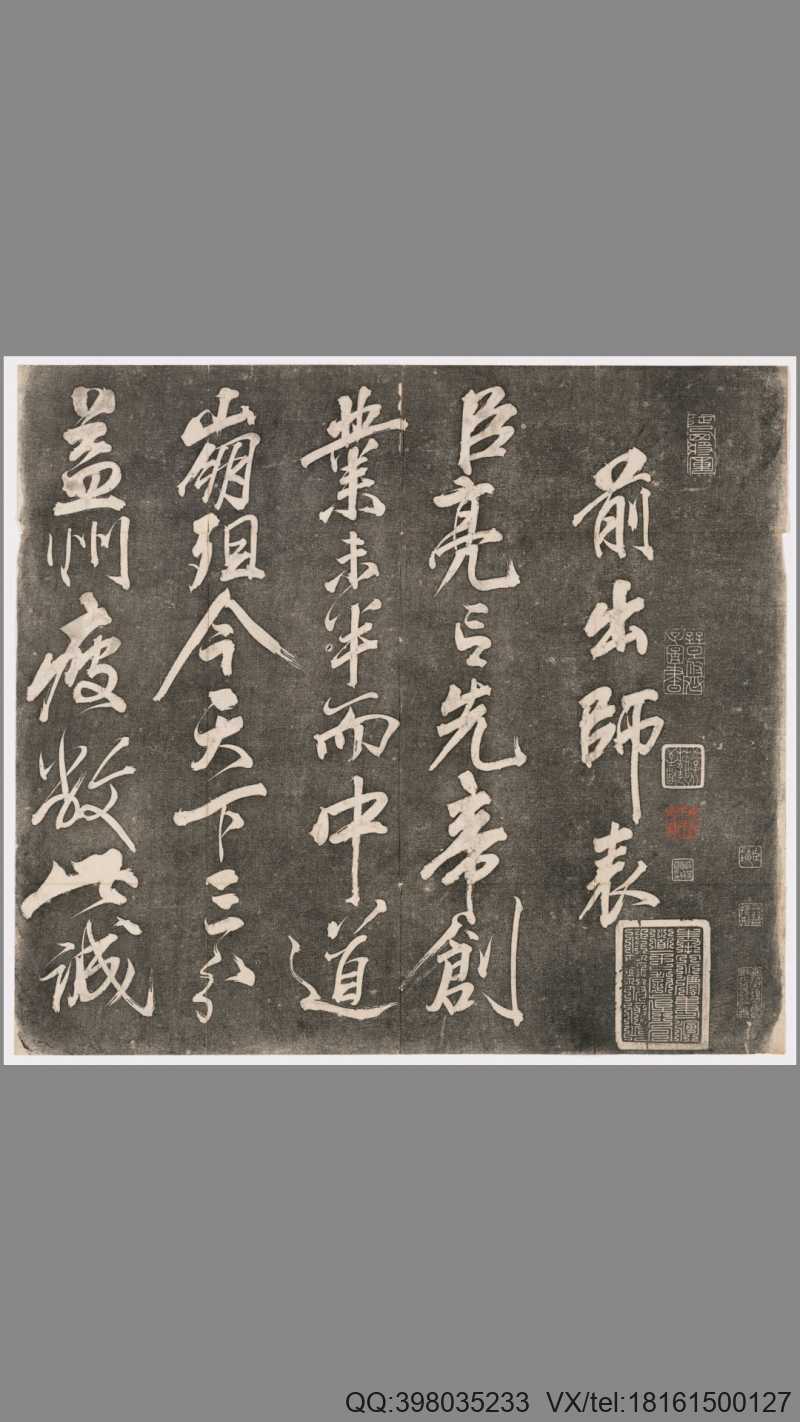 前出師表
臣亮言先帝創
業未半而中道
崩殂今天下三分
益州疲敝此誠
QQ:398035233 VX/tel:18161500127